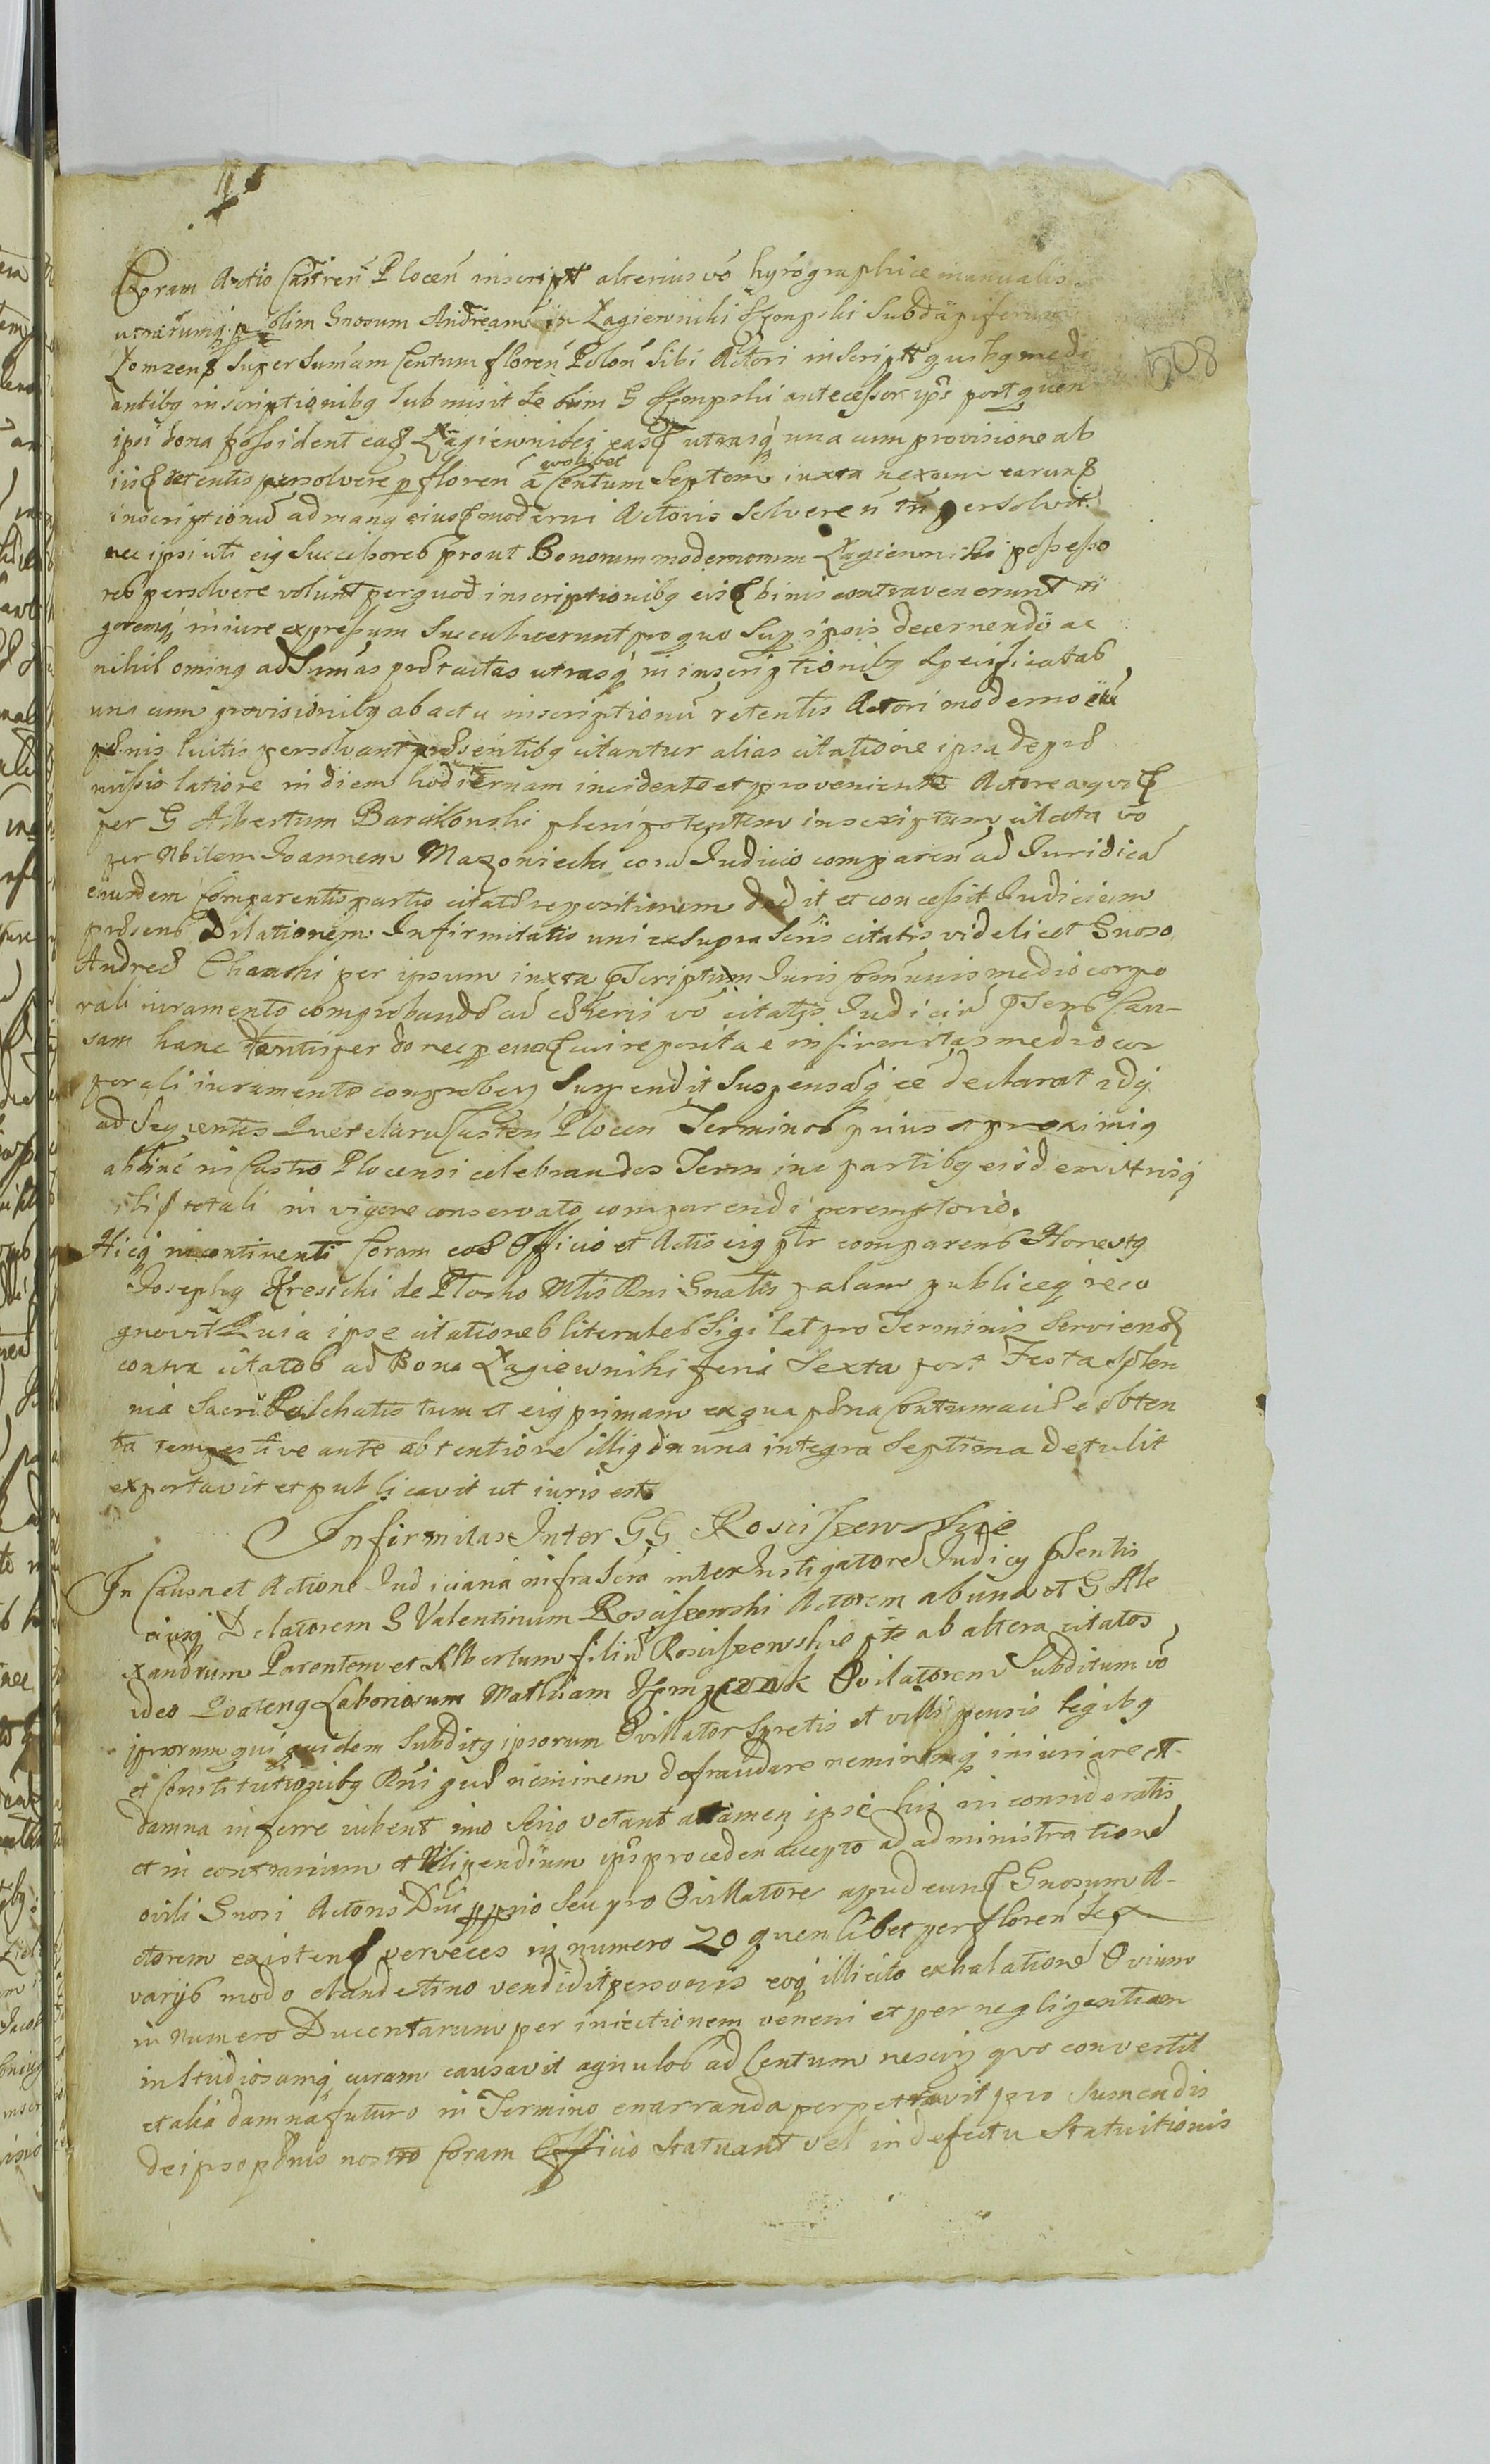 Coram Actis Castren Plocen inscript alterius vo hyrographice manualis
utrarumq p olim Gnosum Andream in Łagiewniki Szempski Subdapiferum
Łomzens super sumam Centum floren Polon sibi Actori inscriptt quibq medi
508
antibq inscriptionibq submisit se olim G Szempski antecessor ips post quem
ipsi bona possident ead Łagiewniki easq utrasq una cum provisione ab
iisd retentis persolvere p floren a quolibet Centum Septem iuxta nexum earund
inscriptionu ad manq eiusd moderni Actoris solvere n tn persolvit
nec ipsi uti eiq Successores prout Bonorum modernorum Łagiewniki possesso
res persolvere volunt per quod inscriptionibq eisd binis contravenerunt ri
goremq in iure expressum succubuerunt pro quo sup ipsis decernendo ac
nihil ominq ad Sumas prætactas utrasq in inscriptionibq specificatas
una cum provisionibq ab actu inscriptionu retentis Actori moderno cu
pænis luitis persolvant præsentibq citantur alias citatione ipsa de præ
missio latiore in diem hodiernam incidente et proveniente Actore a quoq
per G Albertum Barakowski plenipotentem inscriptum citata vo
per Nbilem Joannem Mazowiecki cora Judicio comparen ad Juridica
eiusdem comparentis partis citatæ repositionem dedit et concessit Judicium
præsens Dilationem Infirmitatis uni ex supra Scriis citatis videlicet Gnoso
Andreæ Chamski per ipsum iuxta pscriptum Juris comunis medio corpo
rali iuramento comprobandæ cu cæteris vo citatis Judiciu psens Cau-
sam hanc tantisper donec penes cui reposita e infirmitas medio cor
porali iuramento comprobey suspendit suspensaq ee declarat idq
ad Sequentes Querelaru Casten Plocen Terminos prius et proximiq
abhinc in Castro Plocensi celebrandos Termino partibq eisdem utrisq
ibid totali in vigore conservato comparendi peremptorio.
Hicq in continenti Coram eod Officio et Actis eiq ptr comparens Honestq
Josephq Kresicki de Plocko Mtis Rni Gnalis palam publiceq reco
gnovit Quia ipse citationes literales Sigilat pro Terminis serviend
contra citatos ad Bona Łagiewniki feria Sexta post Festa Solen
nia Sacri Paschatis tum et eiq primam ex qua pæna Contumaciæ e obten
ta tempestive ante obtentione illiq in una integra Septima detulit
exportavit et publicavit ut iuris est.
Infirmitas Inter GG Rosciszewskie
In Causa et Actione Judiciaria infrascra inter Instigatore Judicy psentis
eiusq Delatorem G Valentinum Rosciszewski Actorem ab una et G Ale
xandrum Parentem et Albertum filiu Rosciszewskie pte ab altera citatos
ideo Quatenq Laboriosum Mathiam Ovilatorem Subditum vo
ipsorum qui quidem Subditq ipsorum Ovillator spretis et villipensis legibq
et Constitutionibq Rni quæ neminem defraudare neminemq iniuriare et
damna inferre iubent imo serio vetant attamen ipse his in consideratis
et in contrarium et Vilipendium ips proceden accepto ad administratione
ovili Gnosi Actoris Dni pprio seu pro Ovillatore apud eund Gnosum A-
ctorem existend verveces in numero 20 quemlibet per floren sex
varys modo clandestino vendidit personis eoq illicito exhalatione Ovium
in numero Ducentarum per iniectionem veneni et per negligentiam
in studiosamq curam causavit agnulos ad Centum nescitq quo convertit
et alia damna futuro in Termino enarranda perpetravit pro sumendis
de ipso pænis nostro Coram Officio statuant vel in defectu Statuitionis